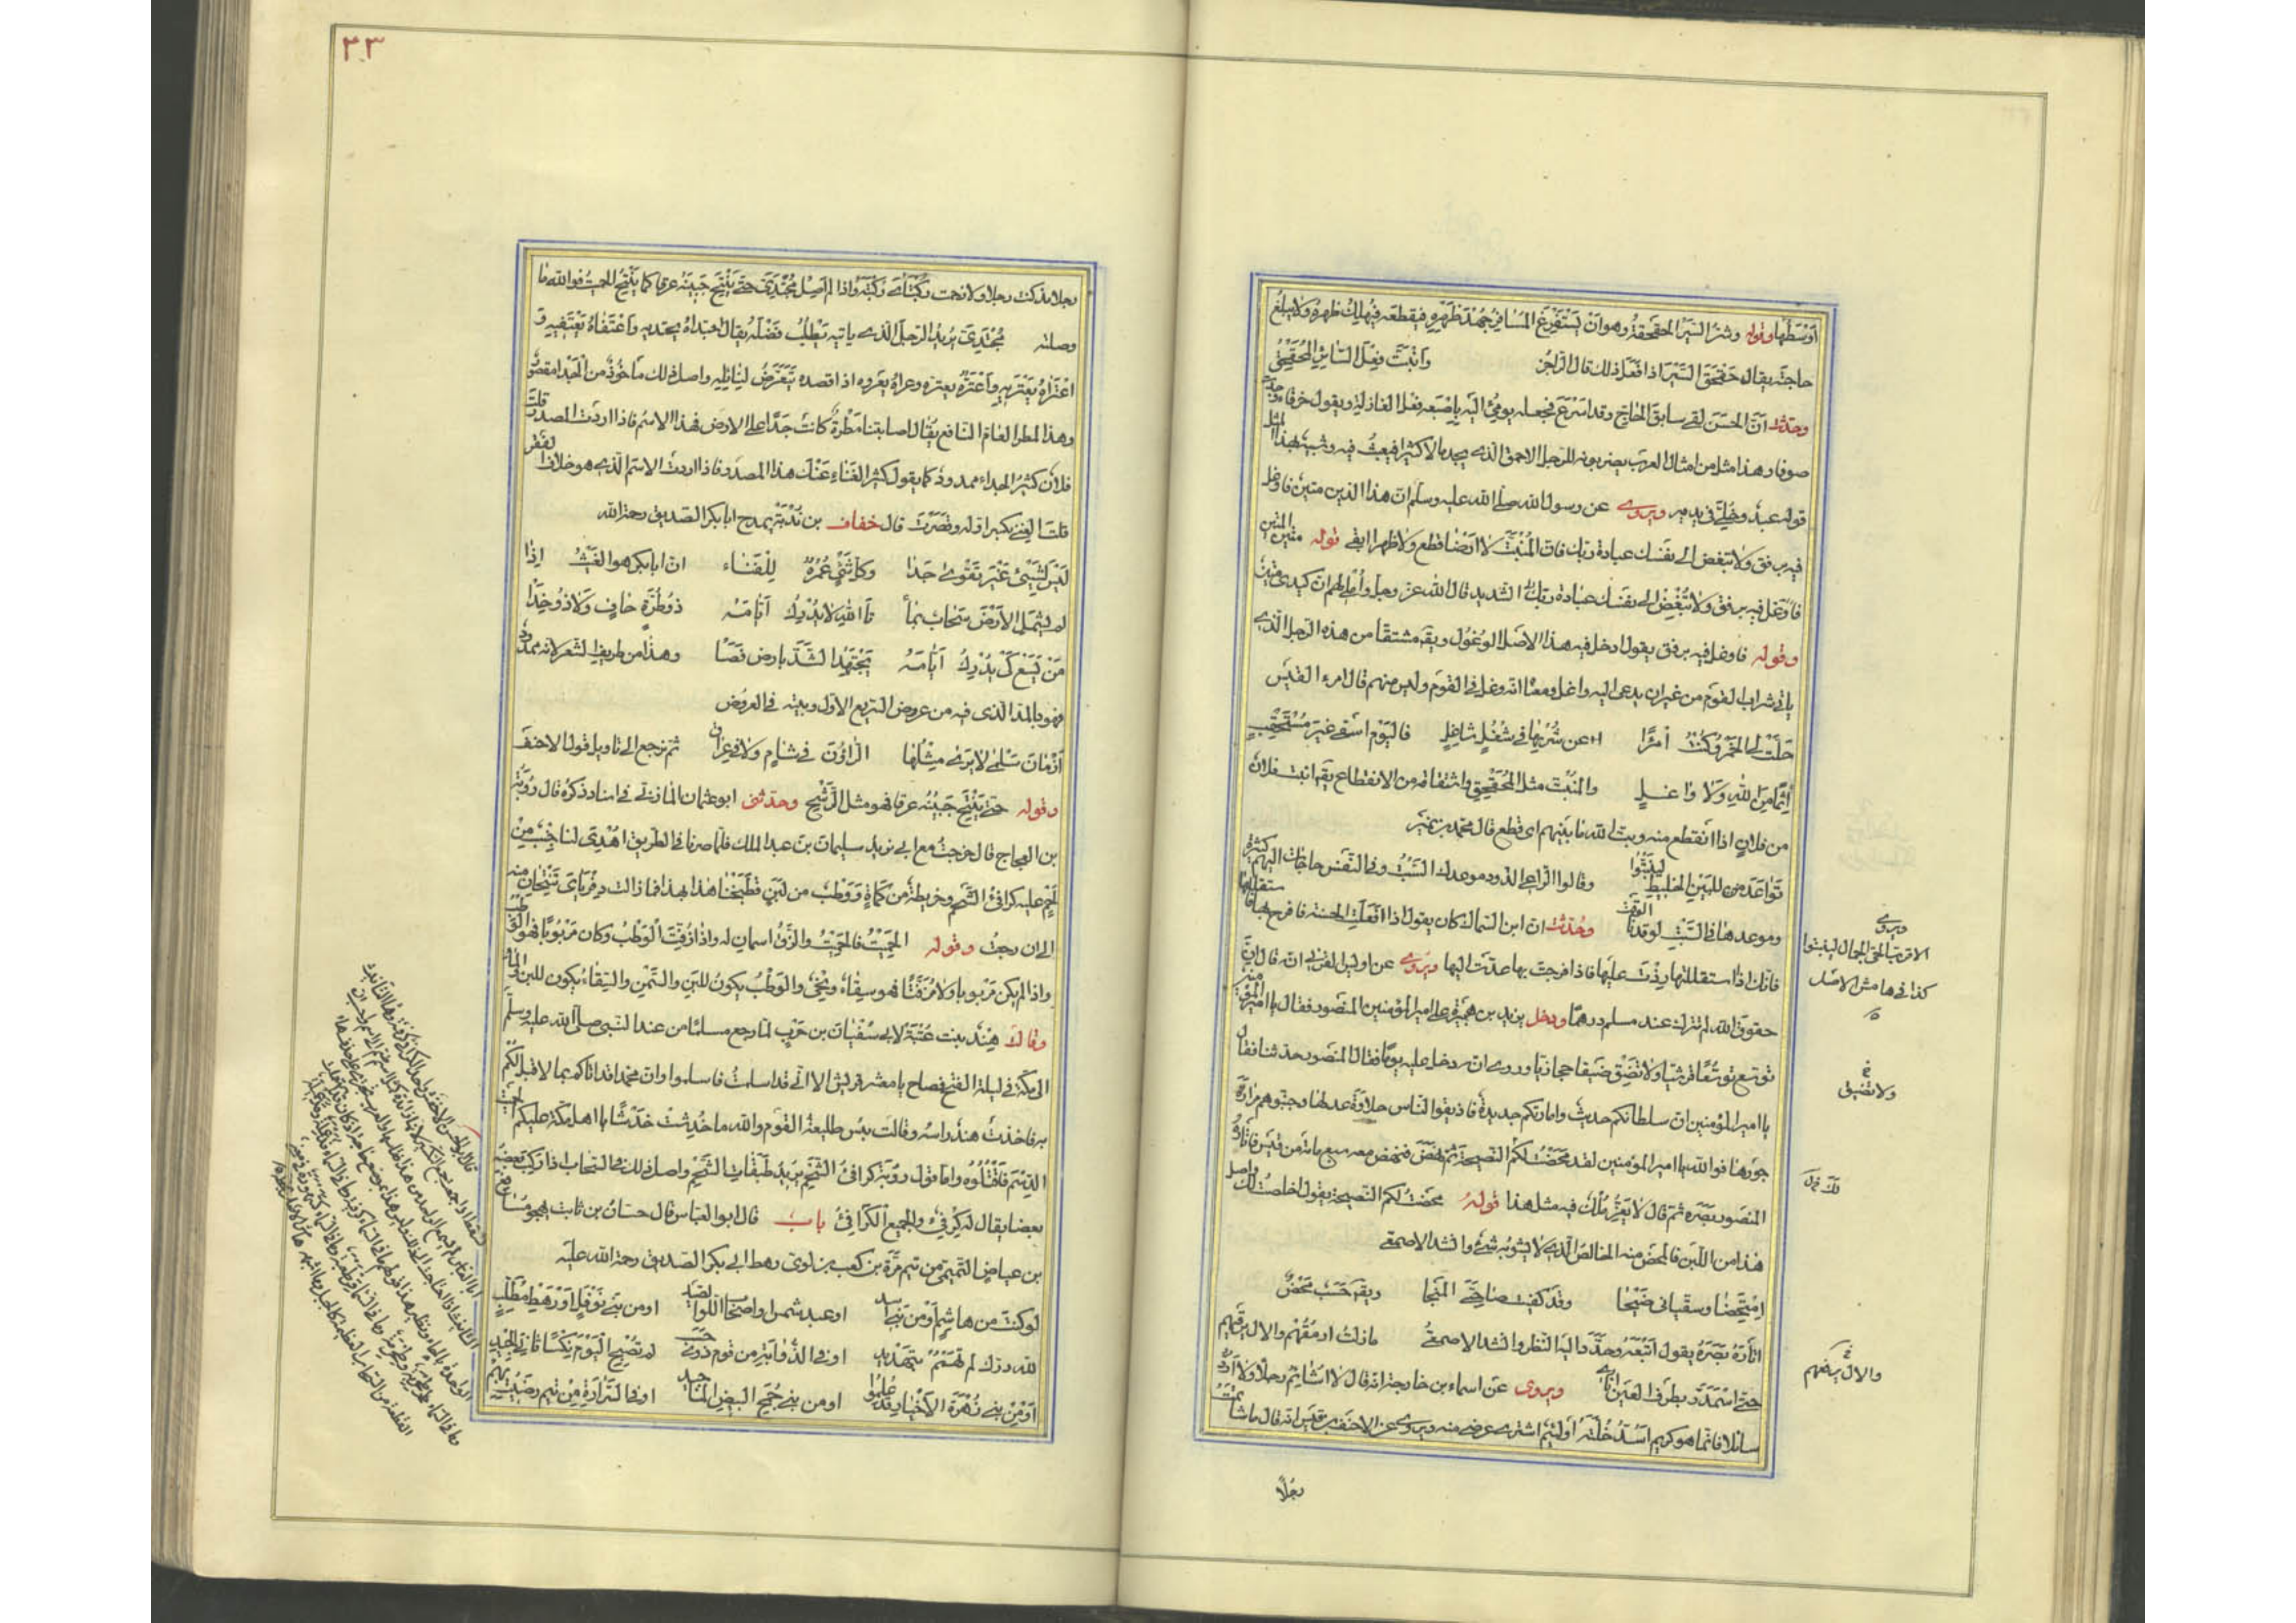 اَوْسَطُها وقوله وشرّ السَّيْرِ الحقحقةُ وهو اَنْ يَسْتَفْرِغَ المُسَافِرُ جُهْدَ ظَهْرِهِ فيقطعه فيُهلِكُ ظهرهُ ولا يبلغ
حاجته يقال حَقْحَقَ السَّيْرَ اذا فَعَلَ ذلك قال الراجز وَانْبَتَّ فِعْلَ السَّائِرِ المُحَقْحِقِ
وحدثت اَنّ الحَسَن لقى سابقَ الحاجّ وقد اسْرَعَ فجعل يومئُ اليه بِاِصْبَعِه فِعْلَ الغازلة ويقول خرقاء وجدت
صوفا وهذا مثل من امثال العرب يضربونه للرجل الاحمق الذي يجد مالا كثيرا فيعيث فيه وشبيهٌ بهذا المثل
قوله عبدٌ وخُلِيَّ في يديه ويروى عن رسول الله صلى الله عليه وسلم ان هذا الدين متينٌ فاوغل
فيه برفق ولا تبغض الى نفسك عبادة ربك فان المُنْبَتَّ لا ارضا قطع ولا ظهرا ابقى قوله متين المتين
فاَوْغِل فيه برفق ولا تُبَغِّضْ الى نفسك عبادة ربك الشديد قال الله عز وجل واُمْلِى لهم ان كيدى متينٌ
وقوله فاوغل فيه برفق يقول ادخل فيه هذا الاصْلُ الوُغُول ويقال مشتقا من هذا الرجل الذي
ياتى شراب القوم من غير ان يدعى اليه واغل ومعناه انه وغل في القوم وليس منهم قال امرء القيس
حَلَّتْ لِىَ الخَمْرُ وكُنْتُ امْرَءًا عن شُرْبِها في شُغُلٍ شاغِلِ فاليَوْم اَسْقَى غيرَ مُسْتَحْقِبٍ
اِثْمًا مِنَ اللهِ ولا واغلِ والمنْبَتّ مثل المُحَقْحِقِ واشتقاقه من الانقطاع يقال انبت فلان
من فلان اذا انقطع منه وبتّ الله ما بينهم اى قطع قال محمد بن نمير
تَوَاعَدَ من للبَيْنِ الخليطِ لينبَتُّوا وقالوا لراعى الذود موعدك السَّبْتُ وفي النّفس حاجات اليهم كثيرة
وموعدها في السَّبْتِ لو قد دنا الوقت وحُدثت ان ابن السماك كان يقول اذا فَعَلْتَ الحسنة فافرح بها واستقللها
فانك اذا استقللتها زِدْتَ عليها فاذا فرحتَ بها عدتَ اليها ويُروى عن اويس القرنى انه قال ان
حقوق الله لم تترك عند مسلم درهمًا ودخل يزيد بن هبيرة على امير المؤمنين المنصور فقال يا امير المؤمنين
توسع توسُّعًا قرشيّا ولا تَضِقْ ضيقا حجازيّا وروى انه دخل عليه يومًا فقال المنصور حدثنا فقال
يا امير المؤمنين ان سلطانكم حديثٌ وامارتكم جديدة فاذيقوا الناس حلاوةَ عدلها وجنّبوهم مرارة
جورها فوالله يا امير المؤمنين لقد مَحَضْتُ لكم النصيحة ثم نهض فنهض معه سبع مائة من قيس فاتاره
المنصور بَصَرَه ثم قال لا يَعِزُّ مُلْكٌ فيه مثل هذا قولهُ محضت لكم النصيحة يقول اخلصتُ لك واصل
هذا من اللبن فالمحض منه الخالص الذي لا يشوبه شئٌ وانشد الاصمعى
اِمْتَحَضا وسقيانى ضَيْحَا وقد كفيت صاحِبَىَّ المَيْحا ويقال حَسَبٌ محضٌ
اتأرَهُ بَصَرَهُ يقول اَتْبَعَهُ وحدّد اليه النظر وانشد الاصمعىُّ مازلت ارمُقُهُم والال يرفعهم
حتى اسْمَدَرَّ بطَرْف العَيْن اتارى ويروى عن اسماء بن خارجة انه قال لا اشاتِمُ رجلًا ولا اردّ
سائلا فانما هو كريم اَسُدُّ خُلَّتَه اولئيم اشترى عرضى منه ويروى عن الاحنف بن قيس انه قال ما شاتمتُ
رجُلًا
ويروى
الاقرب الحى الجمال لينبتوا
كذا في هامش الاصل
ولا تضيق
والال يرفعهم
٣٣
رجلا مذ كنت رجلا ولا زحمت رُكْبَتَاىَ رُكبَتَه واذا لم اَصِلْ مُجْتَدِىَّ حتى يَنْتِحَ جَبِينُهُ عرقا كما يَنْتِحُ الحميتُ فوالله ما
وصلته مُجْتَدِىَّ يريد الرجل الذي ياتيه يَطْلُبُ فَضْلَهُ يقال اجتداهُ يجتديه وَاعْتَفاهُ يَعْتَفِيهِ و
اعْتَرَاهُ يَعْتَرِيه واعْتَرَّهُ يعترّه وعراهُ يعروه اذا قصده يَتَعَرَّضُ لِنَائِلِه واصل ذلك مأخُوذٌ من الجَدَا مقصورٌ
وهذا المطر العام النافع يُقال اصابتنا مَطْرةٌ كانت جَدًا على الارض فهذا الاسم فاذا اردت المصدر قلت
فلانٌ كثيرُ الجداء ممدودٌ كما يقول كثير الغَناءِ عَنْك هذا المصدر فاذا اردت الاسم الذي هو خلافُ الفقر
قلت الغِنى بكسر اوله وقصَرْتَ قال خفاف بن نُدْبَة يمدح ابا بكر الصديق رحمه الله
لَيْسَ لِشَيْئٍ غَيْرِ تَقْوى جَدَا وكل شَيْئٍ عُمْرُهُ لِلْفَنَاء ان ابا بكر هو الغَيْثُ اِذا
لم يشمل الاَرْضَ سَحابٌ بِمَا تَاللهِ لا يُدْرِكُ اَيَّامَهُ ذو طُرَّةٍ حافٍ ولا ذو حِذَا
مَنْ يَسْعَ كَىْ يُدْرِكَ اَيَّامَهُ يَجْتَهِدِ الشَّدَّ بارض فَضَا وهذا من طريف الشعر لانه ممدود
فهو بالمد الذى فيه من عروض السريع الاول وبيته في العروض
اَزْمَانَ سَلْمَى لا يَرَى مِثْلَها الرَّاؤُن في شامٍ ولا في عراق ثم نرجع الى تاويل قول الاحنف
وقوله حتى يَنْتِحَ جَبِينُه عرقا فهو مثل الرَّشْحِ وحدثنى ابو عثمان المازنى في اسناد ذكرهُ قال رُؤْبَةُ
بن العجاج قال خرجتُ مع ابى نويد سليمان بن عبد الملك فلما صرنا في الطريق اُهْدِىَ لنا جَنْبٌ مِنْ
لَحْمٍ عليه كرافئُ الشَّحْم وخريطةٌ من كَمْأَةٍ وَوَطْبٌ من لَبَنٍ فطَبَخْنا هذا بهذا فما زالت ذِفْرَيَاىَ تَنْتِحانِ منه
الى ان رجعتُ وقوله الحَمِيتُ فالحَمِيتُ والزِّقُّ اسمان له واذا زُفّت الوَطْبُ وكان مَرْبُوبًا فهو
واذا لم يكن مَرْبوبا ولا مُزَفّتًا فهو سِقاءٌ ونِحْىٌ والوَطْبُ يكونُ للبَنِ والسَّمْنِ والسِّقاءُ يكون للبن والماء
وقالَت هِنْد بنت عُتْبَة لابى سُفْيان بن حَرْبٍ لما رجع مسلمًا من عند النبى صلى الله عليه وسلم
الى مكّة في ليلة الفتح فصاح يا معشر قريش الا انّى قد اسلمتُ فاسلموا وان محمدا قد اتاكم بما لا قبل لكم
به فاخذتْ هندٌ راسه وقالت بئس طليعةُ القوم والله ما خُدِشت خَدْشًا يا اهل مكّة عليكم
الدَّسِمَ فاقْتُلُوهُ واما قول رؤبة كرافئُ الشَّحْم يريد طَبَقَات الشَّحْم واصل ذلك في السحاب اذا ركب بعضه
بعضا يقال له كِرْفِئٌ والجميع الكَرَافِئُ باب قال ابو العباس قال حسّان بن ثابت يهجو مسافع
بن عياضٍ التيمى من تيم مُرَّة بن كعب بن لوىّ رهط ابى بكر الصديق رحمة الله عليه
لو كنت من هاشمٍ اَوْ من بنى اسد او عبد شمس او اصحاب اللوا الصيد او من بنى نَوْفَلٍ اَوْ رهط مُطَّلِبٍ
لله درك لم تَهْمُمْ بتهديد او في الذؤابة من قوم ذوى حسب لم تصبح اليَوْم نِكْسًا ثانىَ الجيد
اَوْ مِنْ بنى زُهْرَة الاَخْيَار قد عُلِمُوا او من بنى جُمَحَ البيض المناجيد او في السَّرارَةِ مِنْ تيم رضيت بهم